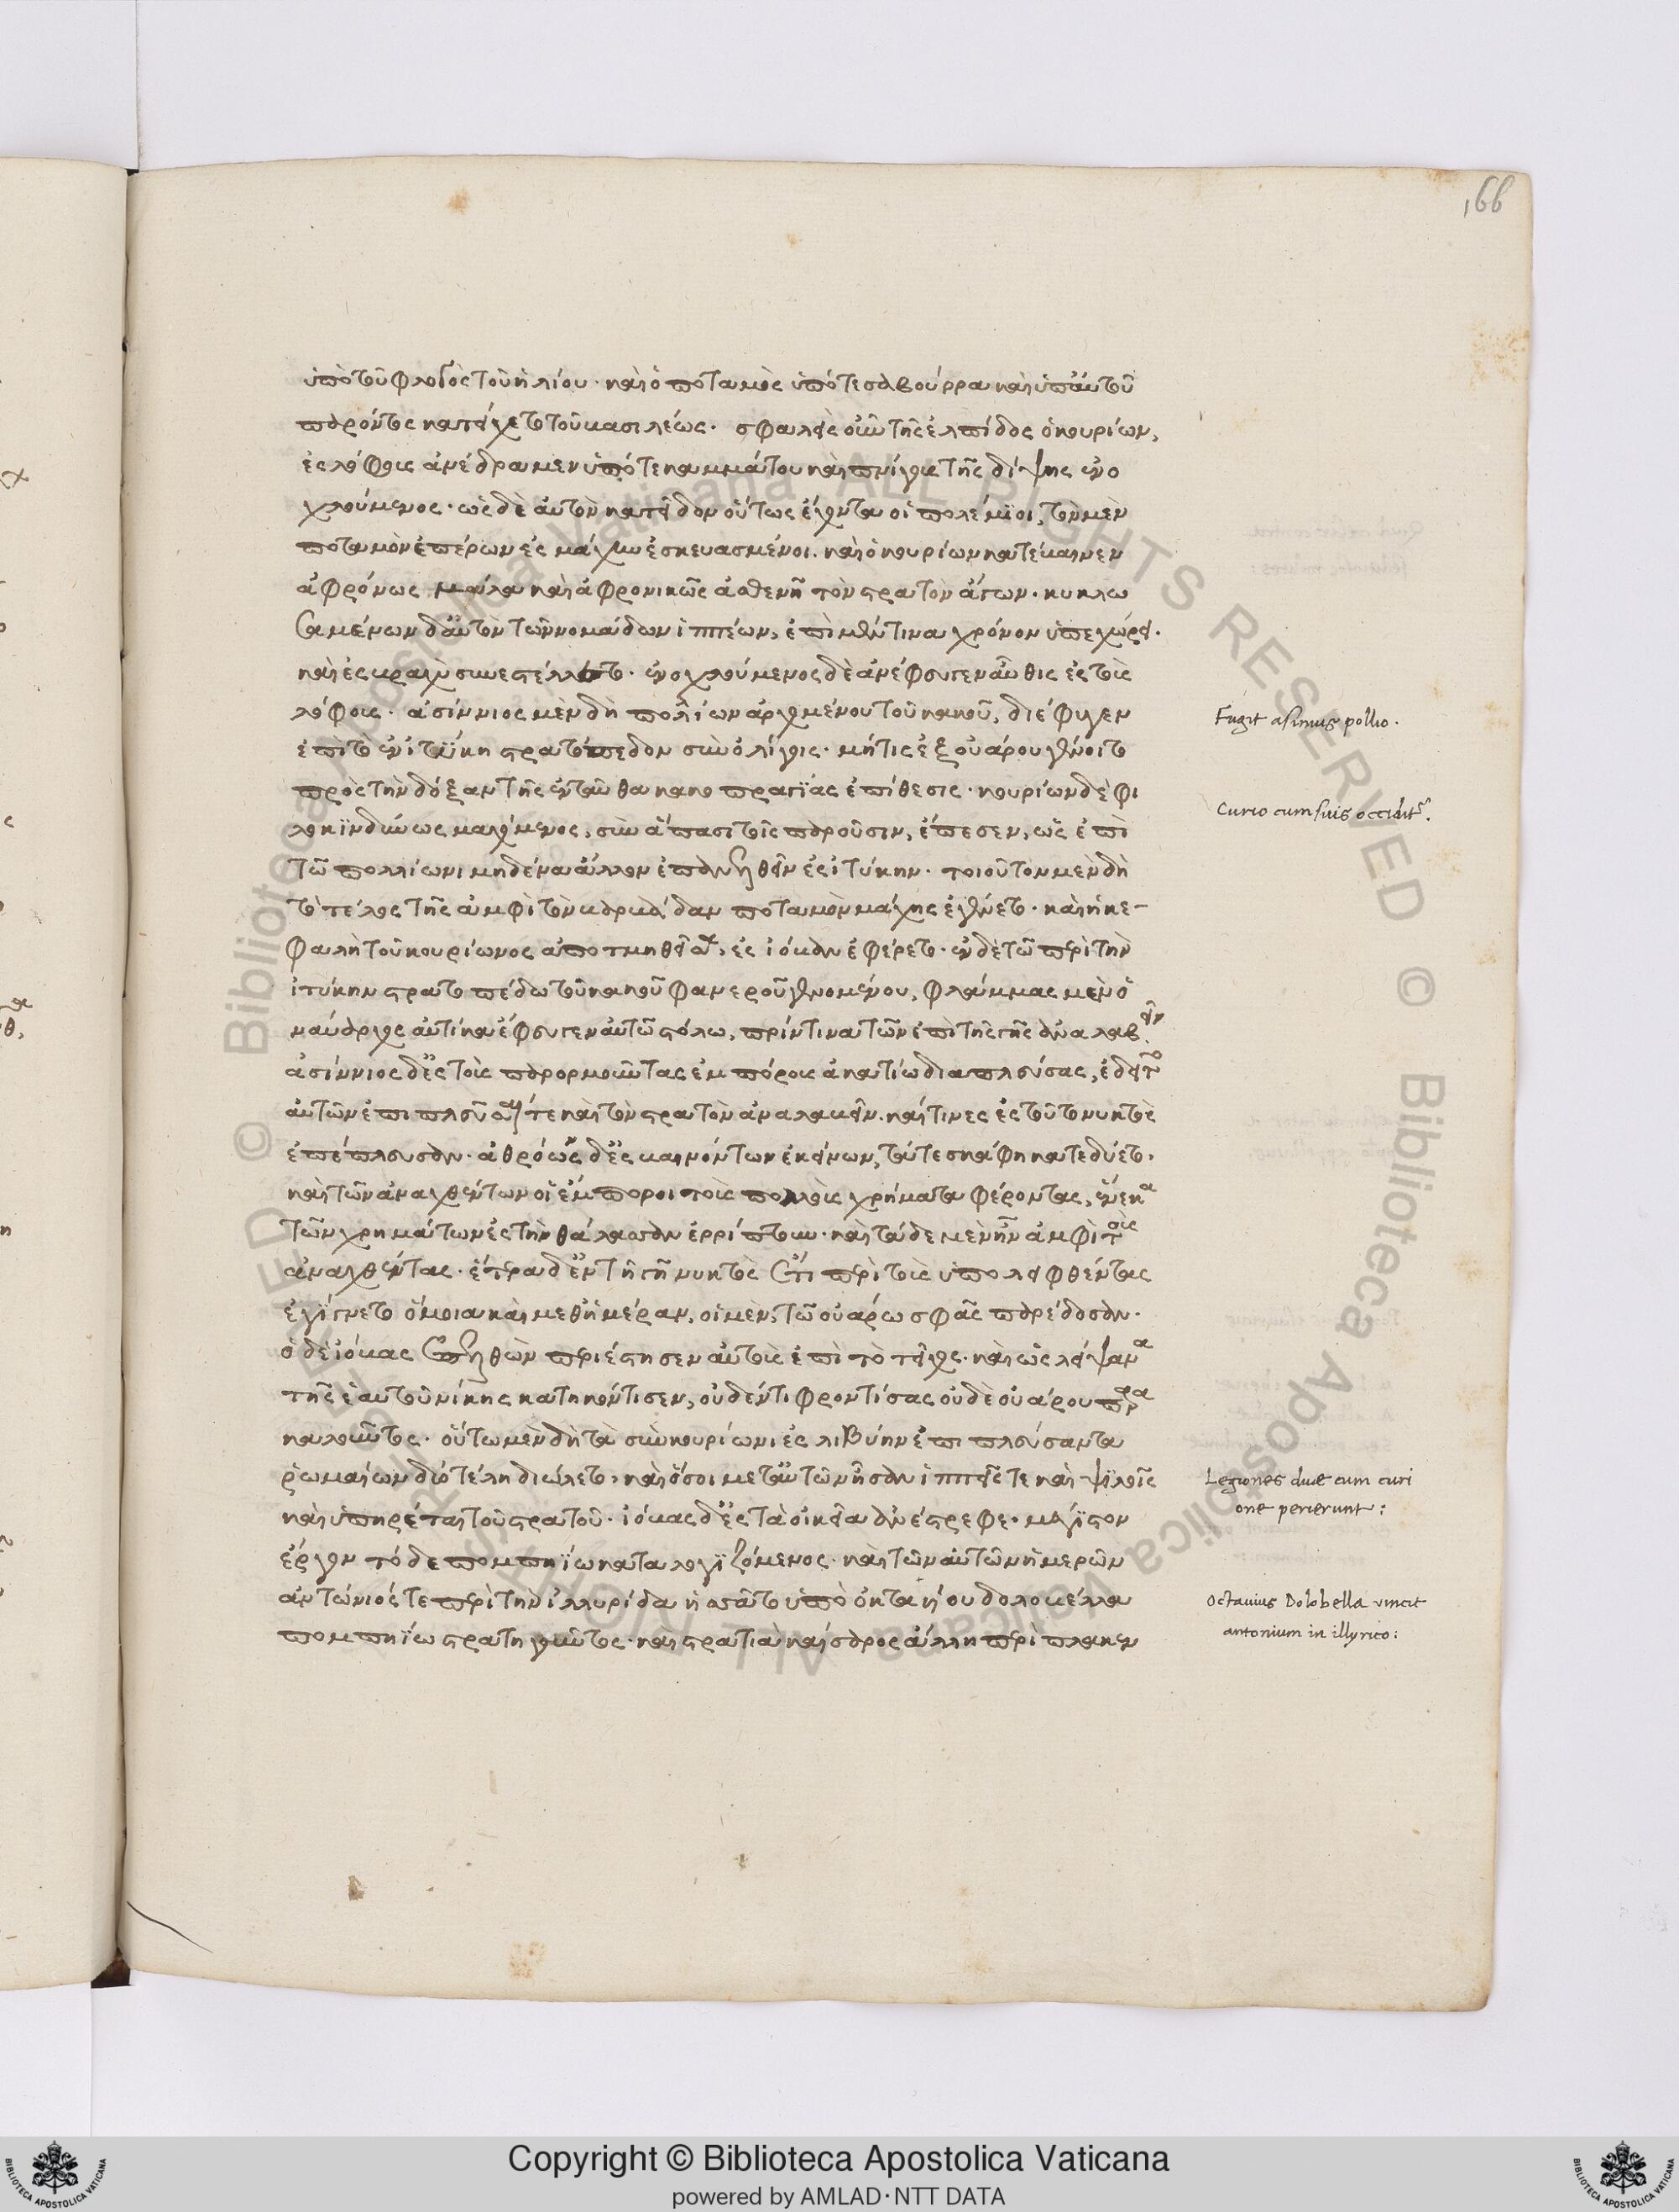 166
ὑπὸ τοῦ φλογὸς τοῦ ἡλίου· καὶ ὁ ποταμὸς ὑπό τε σαβούρρα καὶ ὑπ' αὐτοῦ
παρόντος κατείχετο τοῦ βασιλέως. σφαλεὶς οὖν τῆς ἐλπίδος ὁ κουρίων,
ἐς λόφους ἀνέδραμεν ὑπό τε καμμάτου καὶ πνίγους τῆς δίψης ἐνο
χλούμενος· ὡς δὲ αὐτὸν κατεῖδον οὕτως ἔχοντα οἱ πολέμιοι, τὸν μὲν
ποταμὸν ἐπέρων ἐς μάχην ἐσκευασμένοι. καὶ ὁ κουρίων κατέβαινεν
ἀφρόνως μάλα καὶ ἀφρονικῶς ἀσθενῆ τὸν στρατὸν ἄγων· κυκλω
σαμένων δ' αὐτὸν τῶν νομάδων ἱππέων, ἐπὶ μέν τινα χρόνον ὑπεχώρει·
καὶ ἐς βραχὺ συνεστέλλετο· ἐνοχλούμενος δὲ ἀνέφευγεν αὖθις ἐς τοὺς
λόφους· ἀσίννιος μὲν δὴ πολίων ἀρχομένου τοῦ κακοῦ, διέφυγεν
ἐπὶ τὸ ἐν ἰτύκῃ στρατόπεδον σὺν ὀλίγοις· μή τις ἐξ οὐάρου γένοιτο
πρὸς τὴν δόξαν τῆς ἐνταῦθα κακοπραγίας ἐπίθεσις· κουρίων δὲ φι
λοκινδύνως μαχόμενος, σὺν ἅπασι τοῖς παροῦσιν, ἔπεσεν, ὡς ἐπὶ
τῷ πολλίωνι μηδένα ἄλλον ἐπανελθεῖν ἐς ἰτύκην· τοιοῦτον μὲν δὴ
τὸ τέλος τῆς ἀμφὶ τὸν βαρβάδαν ποταμὸν μάχης ἐγένετο· καὶ ἡ κε-
φαλὴ τοῦ κουρίωνος ἀποτμηθεῖσα, ἐς ἰόβαν ἐφέρετο· ἐν δὲ τῷ περὶ τὴν
ἰτύκην στρατοπέδῳ τοῦ κακοῦ φανεροῦ γενομένου, φλάμμας μὲν ὁ
ναύαρχος αὐτίκα ἔφευγεν αὐτῷ στόλῳ, πρίν τινα τῶν ἐπὶ τῆς γῆς ἀναλαβεῖν
ἀσίννιος δ' ἐς τοὺς παρορμοῦντας ἐμπόρους ἀκατίῳ διαπλεύσας, ἐδεῖτο
αὐτῶν ἐπιπλεῦσαί τε καὶ τὸν στρατὸν ἀναλαβεῖν. καί τινες ἐς τοῦτο νυκτὸς
ἐπέπλευσαν· ἀθρόως δ' ἐσβαινόντων ἐκείνων, τά τε σκάφη κατεδύετο.
καὶ τῶν ἀναχθέντων οἱ ἔμποροι τοὺς πολλοὺς χρήματα φέροντας, ἕνεκα
τῶν χρημάτων ἐς τὴν θάλασσαν ἐρρίπτουν· καὶ τάδε μὲν ἦν ἀμφὶ τοὺς
ἀναχθέντας· ἕτερα δ' ἐν τῇ γῇ νυκτὸς ἔτι περὶ τοὺς ὑπολειφθέντας
ἐγίγνετο ὅμοια καὶ μεθ' ἡμέραν, οἱ μὲν τῷ οὐάρῳ σφᾶς παρέδοσαν·
ὁ δὲ ἰόβας ἐπελθὼν περιέστησεν αὐτοὺς ἐπὶ τὸ τεῖχος· καὶ ὡς λείψανα
τῆς ἑαυτοῦ νίκης κατηκόντισεν, οὐδέν τι φροντίσας οὐδὲ οὐάρου παρα
καλοῦντος· οὕτω μὲν δὴ τὰ σὺν κουρίωνι ἐς λιβύην ἐπιπλεύσαντα
ῥωμαίων δύο τέλη διώλετο, καὶ ὅσοι μετ' αὐτῶν ἦσαν ἱππεῖς τε καὶ ψιλοὶ
καὶ ὑπηρέται τοῦ στρατοῦ· ἰόβας δ' ἐς τὰ οἰκεῖα ἀνέστρεφε· μέγιστον
ἔργον τόδε πομπηίῳ καταλογιζόμενος· καὶ τῶν αὐτῶν ἡμερῶν
ἀντώνιός τε περὶ τὴν ἰλλυρίδα ἡσσᾶτο ὑπὸ ὀκταηίου δολοβέλλα
πομπηίῳ στρατηγοῦντος· καὶ στρατιὰ καίσαρος ἄλλη περὶ πλακεν
Fugit asinius pollio.
Curio cum suis occiditur.
Legiones duæ cum curi
one perierunt:
Octauius Dolobella vincit
antonium in illyrico:
Copyright © Biblioteca Apostolica Vaticana
powered by AMLAD·NTT DATA